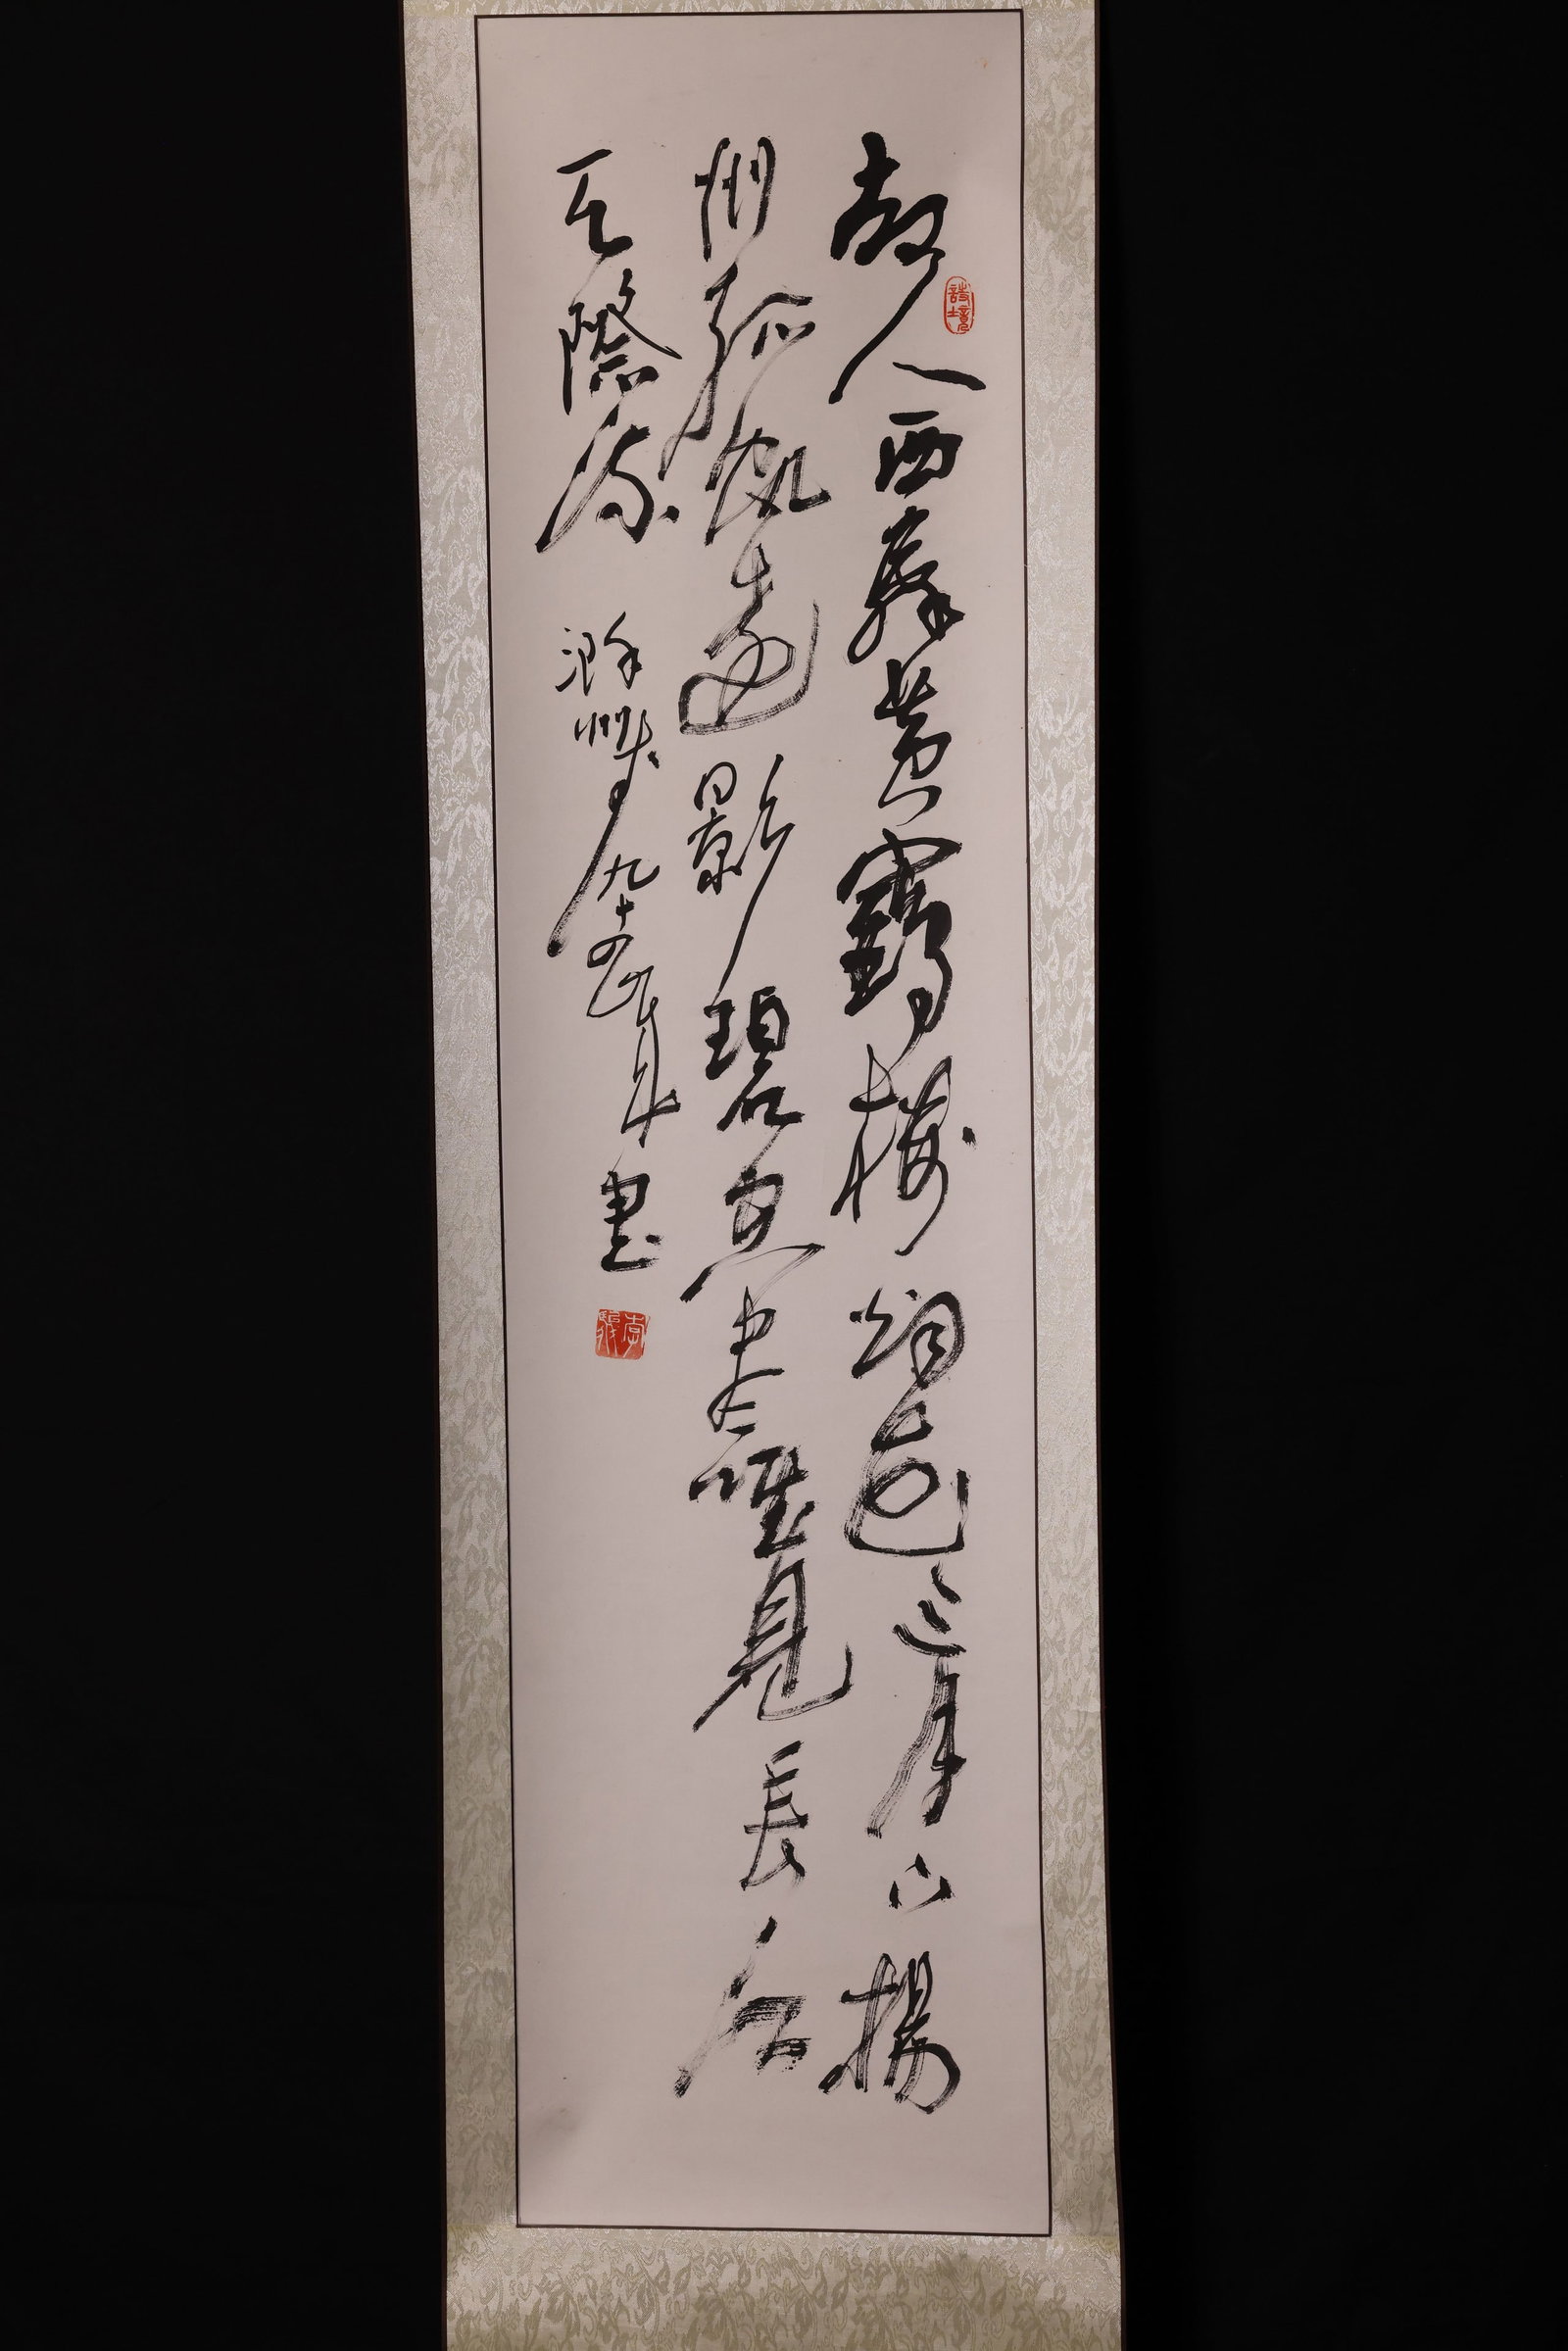 故人西辭黄鶴樓烟花三月下揚
州孤帆遠影碧空盡唯見長江
天際流 滁州 九十四 書